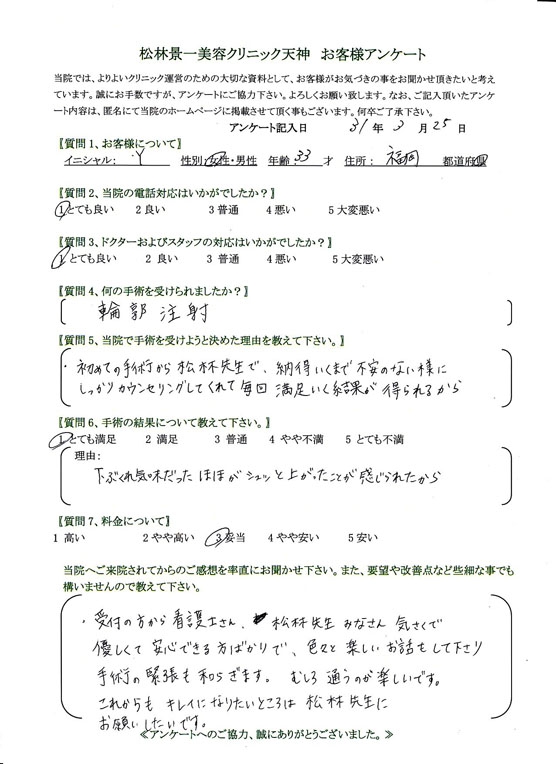 松林景一美容クリニック天神 お客様アンケート
当院では、よりよいクリニック運営のための大切な資料として、お客様がお気づきの事をお聞かせ頂きたいと考え
ています。誠にお手数ですが、アンケートにご協力下さい。よろしくお願い致します。なお、ご記入頂いたアンケ
ート内容は、匿名にて当院のホームページに掲載させて頂く事もございます。何卒ご了承下さい。
アンケート記入日 31 年 3 月 25 日
〖質問1、お客様について〗
イニシャル: Y 性別:女性・男性 年齢 33 才 住所: 福岡 都道府県
〖質問2、当院の電話対応はいかがでしたか?〗
1とても良い 2 良い 3 普通 4 悪い 5 大変悪い
〖質問3、ドクターおよびスタッフの対応はいかがでしたか?〗
1とても良い 2 良い 3 普通 4 悪い 5 大変悪い
〖質問4、何の手術を受けられましたか?〗
輪郭注射
〖質問5、当院で手術を受けようと決めた理由を教えて下さい。〗
・初めての手術から松林先生で、納得いくまで不安のない様に
しっかりカウンセリングしてくれて毎回満足いく結果が得られるから
〖質問6、手術の結果について教えて下さい。〗
1とても満足 2 満足 3 普通 4 やや不満 5 とても不満
理由:
下ぶくれ気味だったほほがシュッと上がったことが感じられたから
〖質問7、料金について〗
1 高い 2 やや高い 3 妥当 4 やや安い 5 安い
当院へご来院されてからのご感想を率直にお聞かせ下さい。また、要望や改善点など些細な事でも
構いませんので教えて下さい。
・受付の方から看護士さん、松林先生みなさん気さくで
優しくて安心できる方ばかりで、色々と楽しいお話をして下さり
手術の緊張も和らぎます。むしろ通うのが楽しいです。
これからもキレイになりたいところは松林先生に
お願いしたいです。
≪アンケートへのご協力、誠にありがとうございました。≫